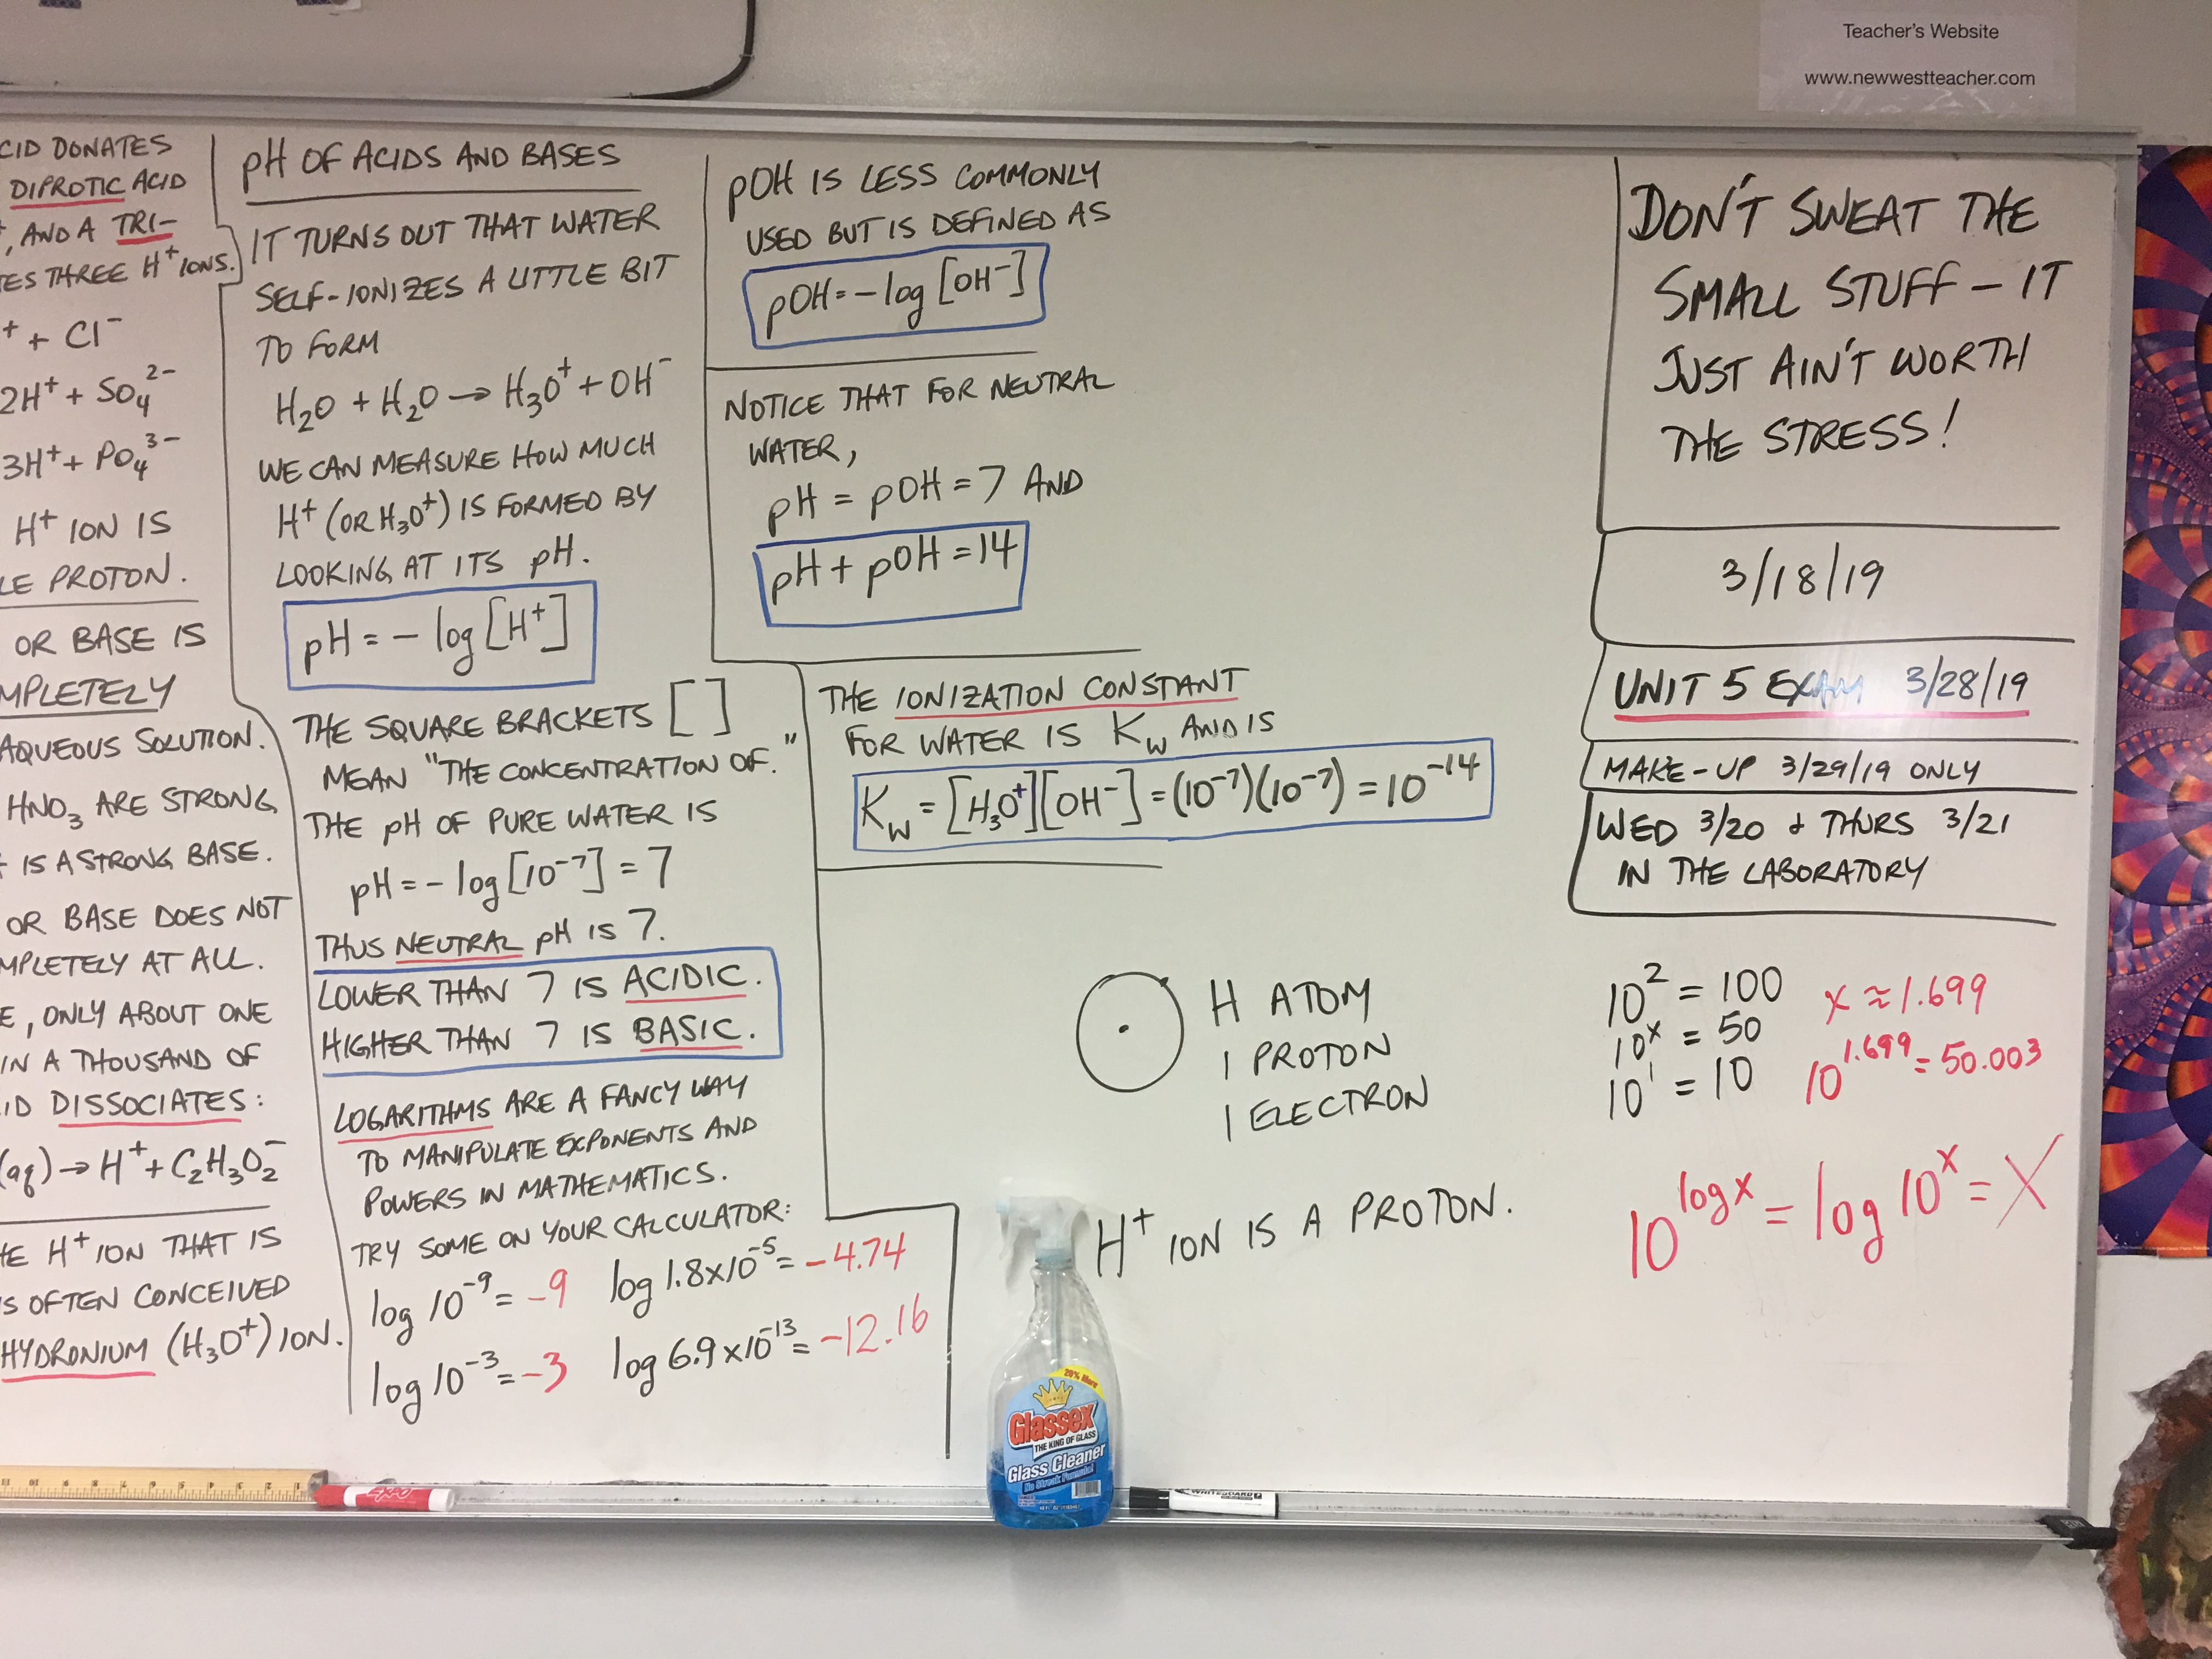 Teacher's Website
www.newwestteacher.com
CID DONATES
DIPROTIC ACID
, AND A TRI-
TES THREE H⁺ IONS.
⁺ + Cl⁻
2H⁺ + SO₄²⁻
3H⁺ + PO₄³⁻
H⁺ ION IS
LE PROTON.
OR BASE IS
MPLETELY
AQUEOUS SOLUTION.
HNO₃ ARE STRONG
IS A STRONG BASE.
OR BASE DOES NOT
MPLETELY AT ALL.
E, ONLY ABOUT ONE
IN A THOUSAND OF
ID DISSOCIATES:
(aq) → H⁺ + C₂H₃O₂⁻
HE H⁺ ION THAT IS
S OFTEN CONCEIVED
HYDRONIUM (H₃O⁺) ION.
pH OF ACIDS AND BASES
IT TURNS OUT THAT WATER
SELF-IONIZES A LITTLE BIT
TO FORM
H₂O + H₂O → H₃O⁺ + OH⁻
WE CAN MEASURE HOW MUCH
H⁺ (OR H₃O⁺) IS FORMED BY
LOOKING AT ITS pH.
pH = - log [H⁺]
THE SQUARE BRACKETS [ ]
MEAN "THE CONCENTRATION OF."
THE pH OF PURE WATER IS
pH = - log [10⁻⁷] = 7
THUS NEUTRAL pH IS 7.
LOWER THAN 7 IS ACIDIC.
HIGHER THAN 7 IS BASIC.
LOGARITHMS ARE A FANCY WAY
TO MANIPULATE EXPONENTS AND
POWERS IN MATHEMATICS.
TRY SOME ON YOUR CALCULATOR:
log 10⁻⁹ = -9 log 1.8x10⁻⁵ = -4.74
log 10⁻³ = -3 log 6.9x10⁻¹³ = -12.16
pOH IS LESS COMMONLY
USED BUT IS DEFINED AS
pOH = - log [OH⁻]
NOTICE THAT FOR NEUTRAL
WATER,
pH = pOH = 7 AND
pH + pOH = 14
THE IONIZATION CONSTANT
FOR WATER IS Kw AND IS
Kw = [H₃O⁺][OH⁻] = (10⁻⁷)(10⁻⁷) = 10⁻¹⁴
H ATOM
1 PROTON
1 ELECTRON
H⁺ ION IS A PROTON.
DON'T SWEAT THE
SMALL STUFF - IT
JUST AIN'T WORTH
THE STRESS!
3/18/19
UNIT 5 EXAM 3/28/19
MAKE-UP 3/29/19 ONLY
WED 3/20 & THURS 3/21
IN THE LABORATORY
10² = 100 x ≈ 1.699
10ˣ = 50
10¹ = 10 10^1.699 = 50.003
10^log x = log 10ˣ = X
20% More
Glassex
THE KING OF GLASS
Glass Cleaner
No Streak Formula!
EXPO
WHITEBOARD